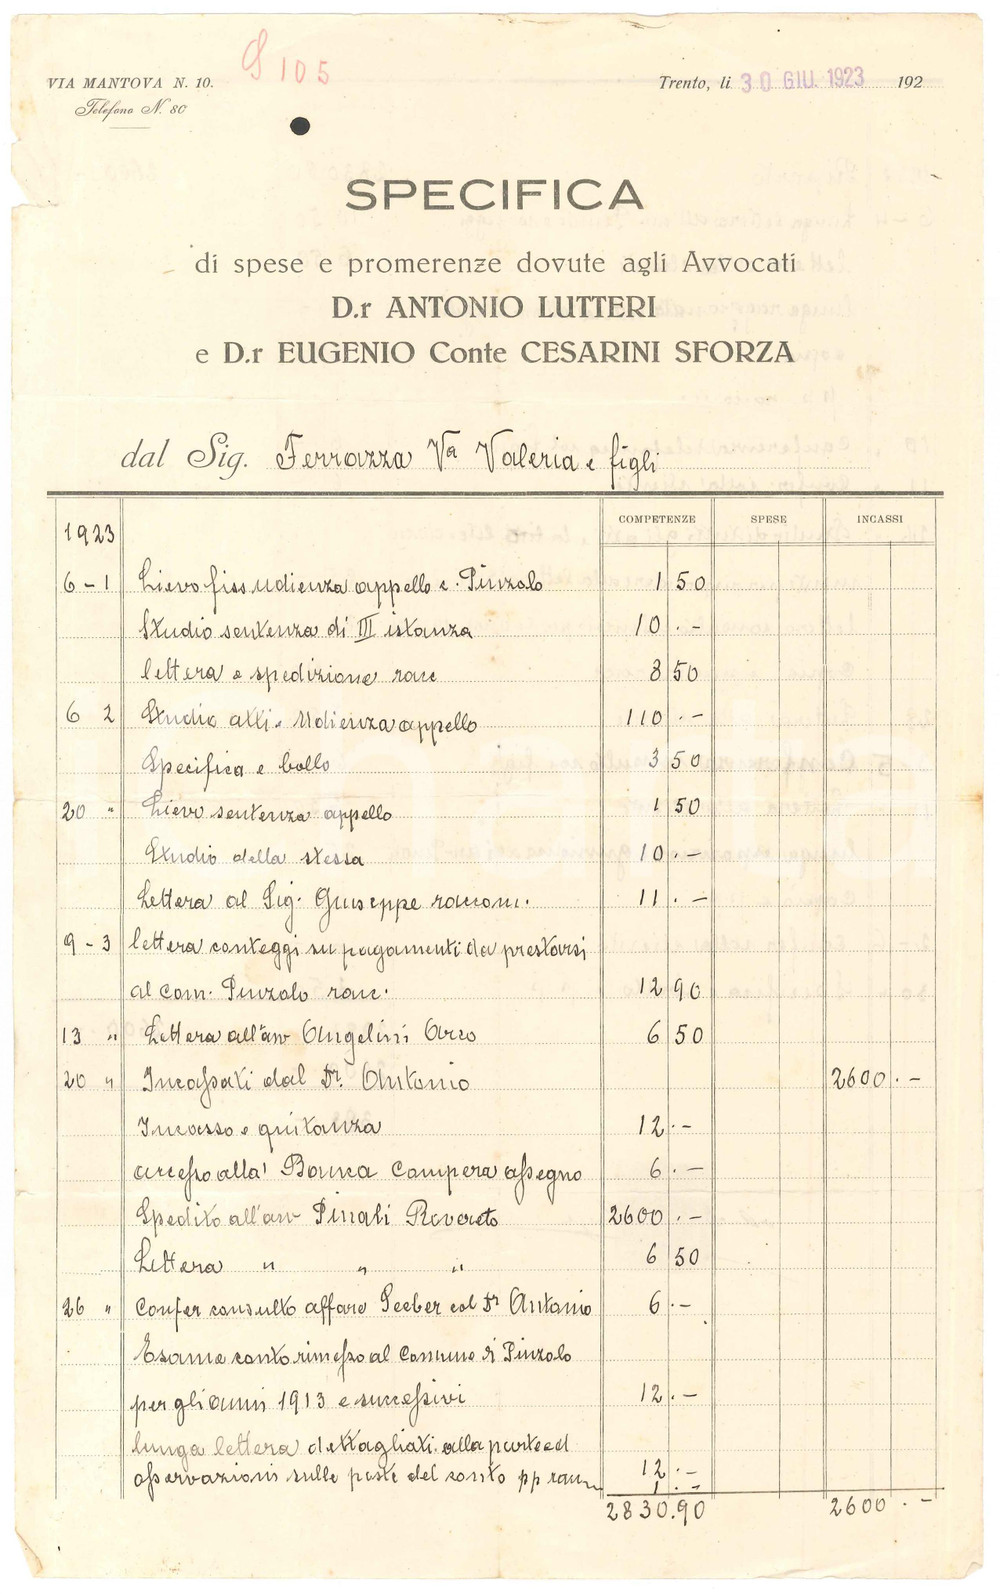 VIA MANTOVA N. 10.
Telefono N. 80
S 105
Trento, li 30 GIU. 1923 192
SPECIFICA
di spese e promerenze dovute agli Avvocati
D.r ANTONIO LUTTERI
e D.r EUGENIO Conte CESARINI SFORZA
dal Sig. Ferrazza Va Valeria e figli
COMPETENZE SPESE INCASSI
1923
6 - 1 Lievo fiss udienza appello c. Pinzolo 1 50
Studio sentenza di III istanza 10 . -
lettera e spedizione racc 8 50
6 2 Studio atti e Udienza appello 110 . -
Specifica e bollo 3 50
20 " Lievo sentenza appello 1 50
Studio della stessa 10 . -
Lettera al Sig. Giuseppe raccom. 11 . -
9 - 3 lettera conteggi su pagamenti da prestarsi
al com. Pinzolo racc. 12 90
13 " Lettera all'avv Angelini Arco 6 50
20 " Incassati dal Dr. Antonio 2600 . -
Incasso e quitanza 12 . -
accesso alla Banca compera assegno 6 . -
Spedito all'avv Pinali Rovereto 2600 . -
Lettera " " " 6 50
26 " Confer consulto affare Seeber col Dr Antonio 6 . -
Esame conto rimesso al Comune di Pinzolo
per gli anni 1913 e successivi 12 . -
lunga lettera dettagliati alla parte ed
osservazioni sulle poste del conto pp racc 12 . -
1 . -
2830.90 2600 . -